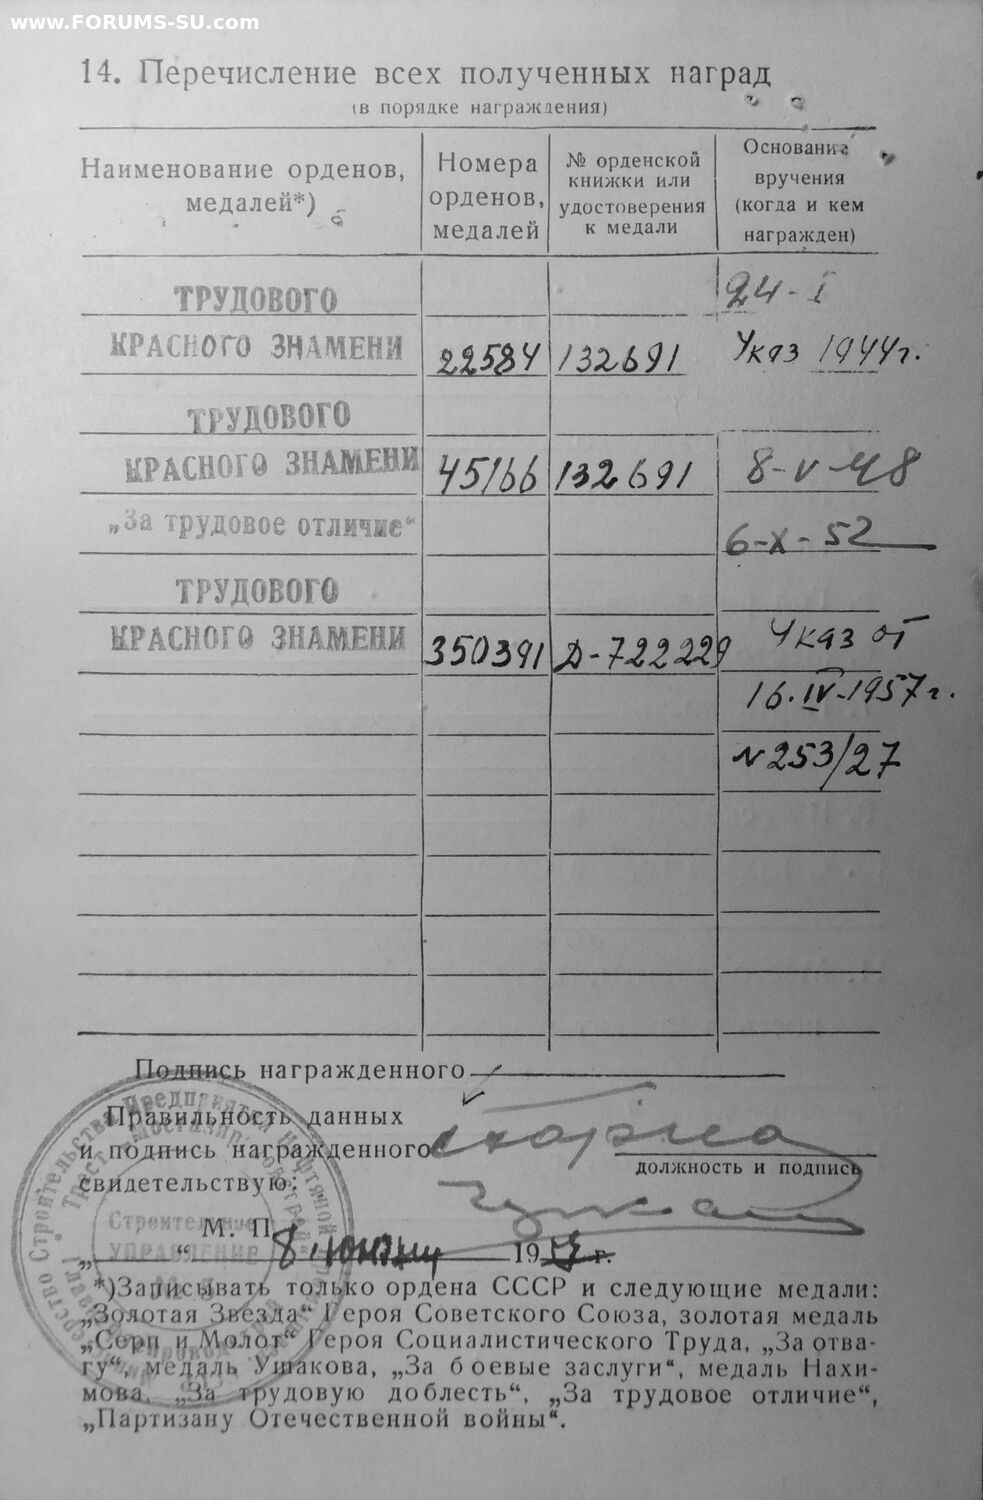 www.FORUMS-SU.com
14. Перечисление всех полученных наград
(в порядке награждения)
Наименование орденов, медалей*)
Номера орденов, медалей
№ орденской книжки или удостоверения к медали
Основание вручения (когда и кем награжден)
ТРУДОВОГО 24-I
КРАСНОГО ЗНАМЕНИ 22584 132691 Указ 1944г.
ТРУДОВОГО
КРАСНОГО ЗНАМЕНИ 45166 132691 8-V-48
„За трудовое отличие“ 6-X-52
ТРУДОВОГО
КРАСНОГО ЗНАМЕНИ 350391 Д-722229 Указ от
16.IV-1957г.
N253/27
Подпись награжденного
Правильность данных
и подпись награжденного
должность и подпись
свидетельствую:
Строительное
УПРАВЛЕНИЕ
М. П.
„ “ 8 июня 1957 г.
*)Записывать только ордена СССР и следующие медали:
„Золотая Звезда“ Героя Советского Союза, золотая медаль
„Серп и Молот“ Героя Социалистического Труда, „За отва-
гу“, медаль Ушакова, „За боевые заслуги“, медаль Нахи-
мова, „За трудовую доблесть“, „За трудовое отличие“,
„Партизану Отечественной войны“.